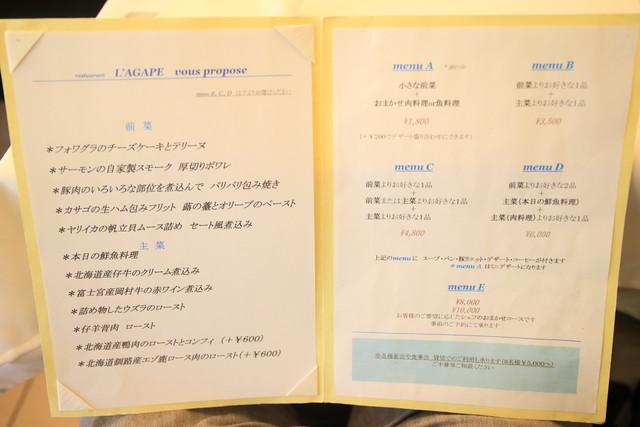 restaurant L'AGAPE vous propose
menu B, C, D は下よりお選びください
前 菜
＊フォワグラのチーズケーキとテリーヌ
＊サーモンの自家製スモーク 厚切りポワレ
＊豚肉のいろいろな部位を煮込んで パリパリ包み焼き
＊カサゴの生ハム包みフリット 蕗の薹とオリーブのペースト
＊ヤリイカの帆立貝ムース詰め セート風煮込み
主 菜
＊本日の鮮魚料理
＊北海道産仔牛のクリーム煮込み
＊富士宮産岡村牛の赤ワイン煮込み
＊詰め物したウズラのロースト
＊仔羊背肉 ロースト
＊北海道産鴨肉のローストとコンフィ (＋￥600)
＊北海道釧路産エゾ鹿ロース肉のロースト(＋￥600)
menu A
小さな前菜
＋
おまかせ肉料理or魚料理
￥1,800
(＋￥200でデザート盛り合わせにできます)
menu B
前菜よりお好きな1品
＋
主菜よりお好きな1品
￥3,500
menu C
前菜よりお好きな1品
＋
前菜または主菜よりお好きな1品
＋
主菜よりお好きな1品
￥4,800
menu D
前菜よりお好きな2品
＋
主菜(本日の鮮魚料理)
＋
主菜(肉料理)よりお好きな1品
￥6,000
上記のmenuに スープ・パン・豚リエット・デザート・コーヒーが付きます
＊menu A はミニデザートになります
menu E
￥8,000
￥10,000
お客様のご要望に応じたシェフのおまかせコースです
事前のご予約にて承ります
各種宴会や食事会 貸切でのご利用も承ります(8名様￥5,000～)
ご予算等ご相談ください